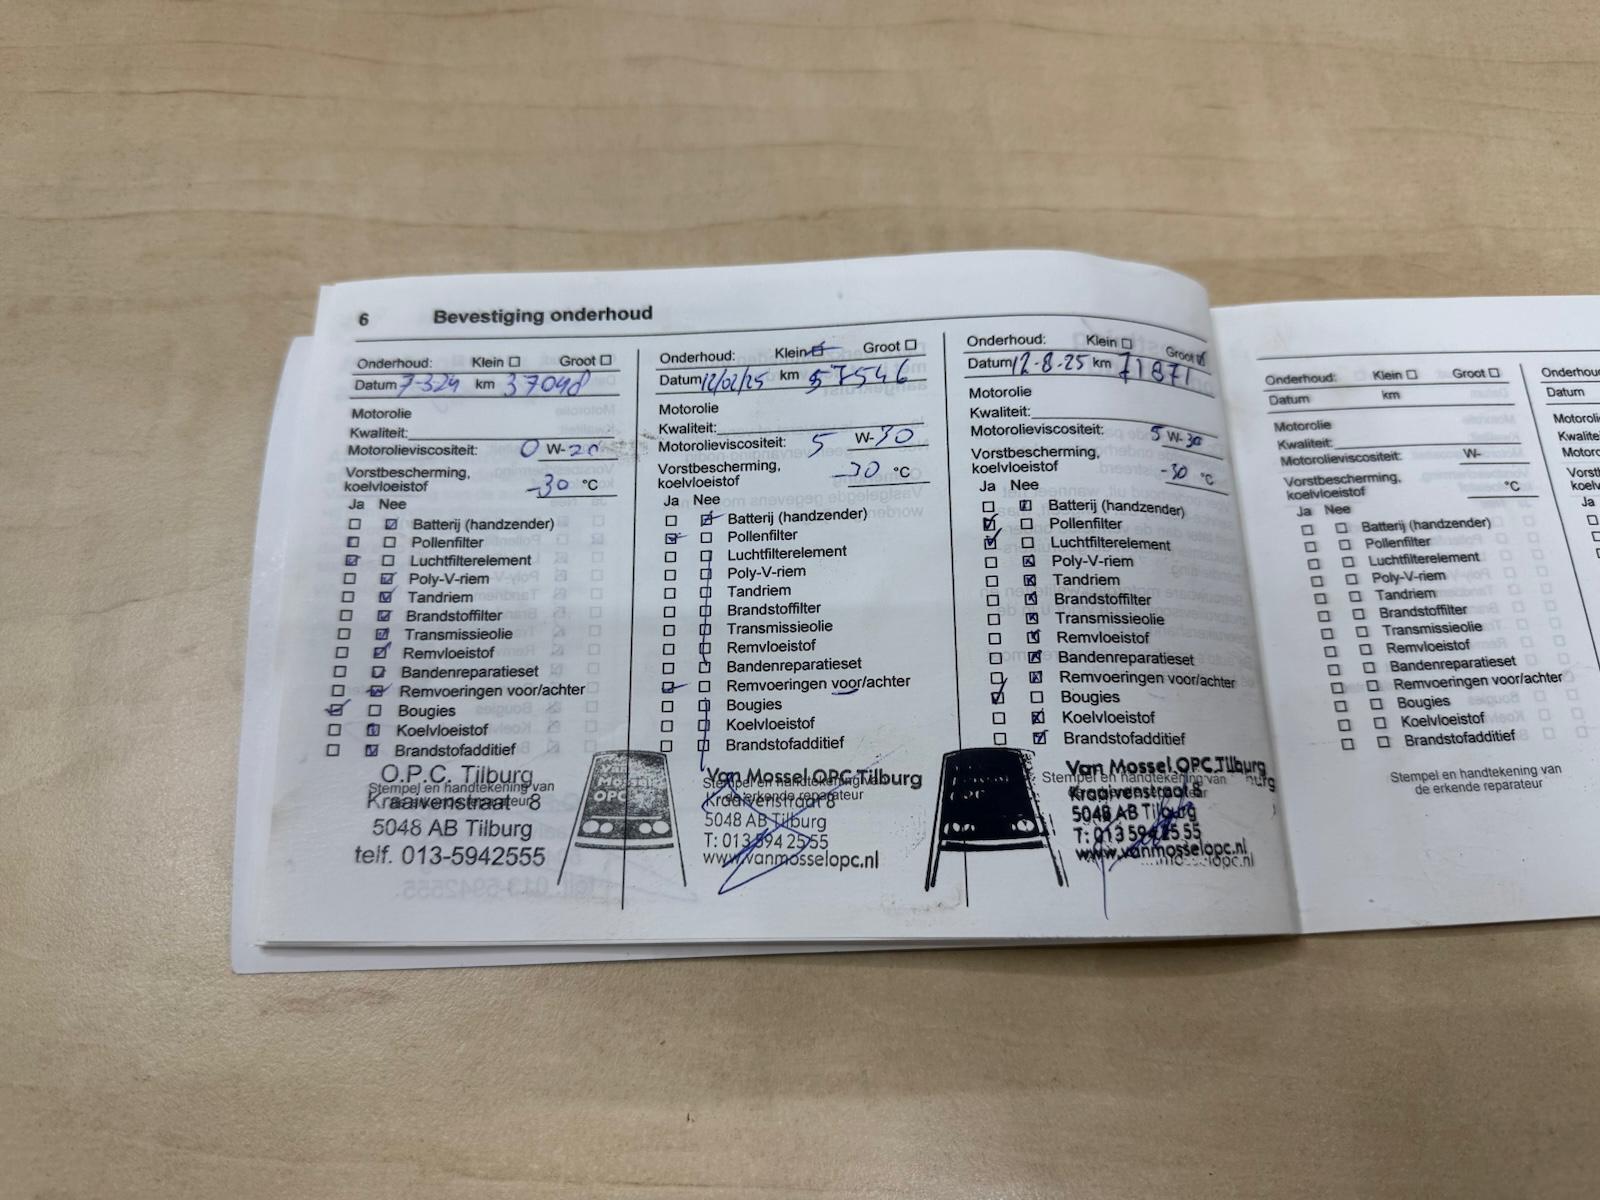 6 Bevestiging onderhoud
Onderhoud: Klein Groot
Datum 7-3-24 km 37048
Motorolie
Kwaliteit:
Motorolieviscositeit: 0 W-20
Vorstbescherming,
koelvloeistof -30 °C
Ja Nee
Batterij (handzender)
Pollenfilter
Luchtfilterelement
Poly-V-riem
Tandriem
Brandstoffilter
Transmissieolie
Remvloeistof
Bandenreparatieset
Remvoeringen voor/achter
Bougies
Koelvloeistof
Brandstofadditief
Stempel en handtekening van
de erkende reparateur
O.P.C. Tilburg
Kraaivenstraat 8
5048 AB Tilburg
telf. 013-5942555
Onderhoud: Klein Groot
Datum 12/02/25 km 57546
Motorolie
Kwaliteit:
Motorolieviscositeit: 5 W-30
Vorstbescherming,
koelvloeistof -30 °C
Ja Nee
Batterij (handzender)
Pollenfilter
Luchtfilterelement
Poly-V-riem
Tandriem
Brandstoffilter
Transmissieolie
Remvloeistof
Bandenreparatieset
Remvoeringen voor/achter
Bougies
Koelvloeistof
Brandstofadditief
Stempel en handtekening van
de erkende reparateur
OPC
Van Mossel OPC Tilburg
Kraaivenstraat 8
5048 AB Tilburg
T: 013 594 25 55
www.vanmosselopc.nl
Onderhoud: Klein Groot
Datum 12-8-25 km 71871
Motorolie
Kwaliteit:
Motorolieviscositeit: 5 W-30
Vorstbescherming,
koelvloeistof -30 °C
Ja Nee
Batterij (handzender)
Pollenfilter
Luchtfilterelement
Poly-V-riem
Tandriem
Brandstoffilter
Transmissieolie
Remvloeistof
Bandenreparatieset
Remvoeringen voor/achter
Bougies
Koelvloeistof
Brandstofadditief
Stempel en handtekening van
Van Mossel OPC Tilburg
Kraaivenstraat 8
5048 AB Tilburg
T: 013 594 25 55
www.vanmosselopc.nl
Onderhoud: Klein Groot
Datum km
Motorolie
Kwaliteit:
Motorolieviscositeit: W-
Vorstbescherming,
koelvloeistof °C
Ja Nee
Batterij (handzender)
Pollenfilter
Luchtfilterelement
Poly-V-riem
Tandriem
Brandstoffilter
Transmissieolie
Remvloeistof
Bandenreparatieset
Remvoeringen voor/achter
Bougies
Koelvloeistof
Brandstofadditief
Stempel en handtekening van
de erkende reparateur
Datum
Ja